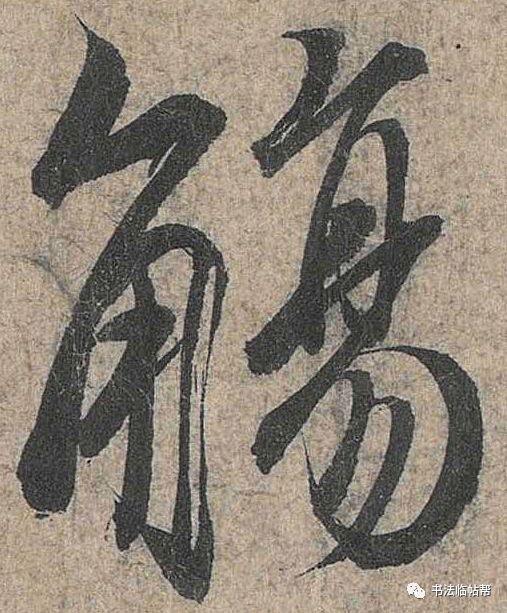 觴
书法临帖帮